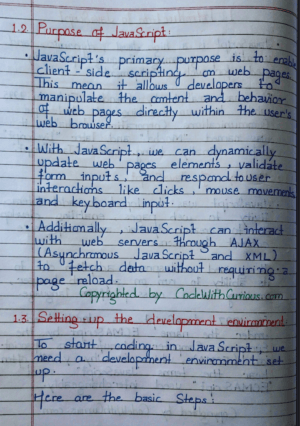 1.2 Purpose of JavaScript:
• JavaScript's primary purpose is to enable
client-side scripting on web pages
This mean it allows developers to
manipulate the content and behavior
of web pages directly within the user's
web browser.
• With JavaScript, we can dynamically
update web pages elements, validate
form inputs, and respond to user
interactions like clicks, mouse movements
and keyboard input.
• Additionally, JavaScript can interact
with web servers through AJAX
(Asynchronous JavaScript and XML)
to fetch data without requiring a
page reload.
Copyrighted by CodeWithCurious.com
1.3. Setting up the development environment
To start coding in JavaScript, we
need a development environment set
up.
Here are the basic Steps: